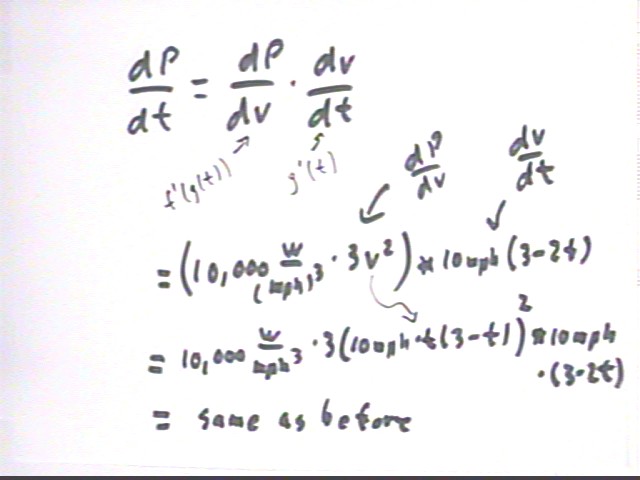 dP/dt = dP/dv · dv/dt
f'(g(t)) g'(t)
dP/dv dv/dt
= (10,000 W/(mph)³ · 3v²) * 10mph (3-2t)
= 10,000 W/mph³ · 3(10mph·t(3-t))² * 10mph
· (3-2t)
= same as before